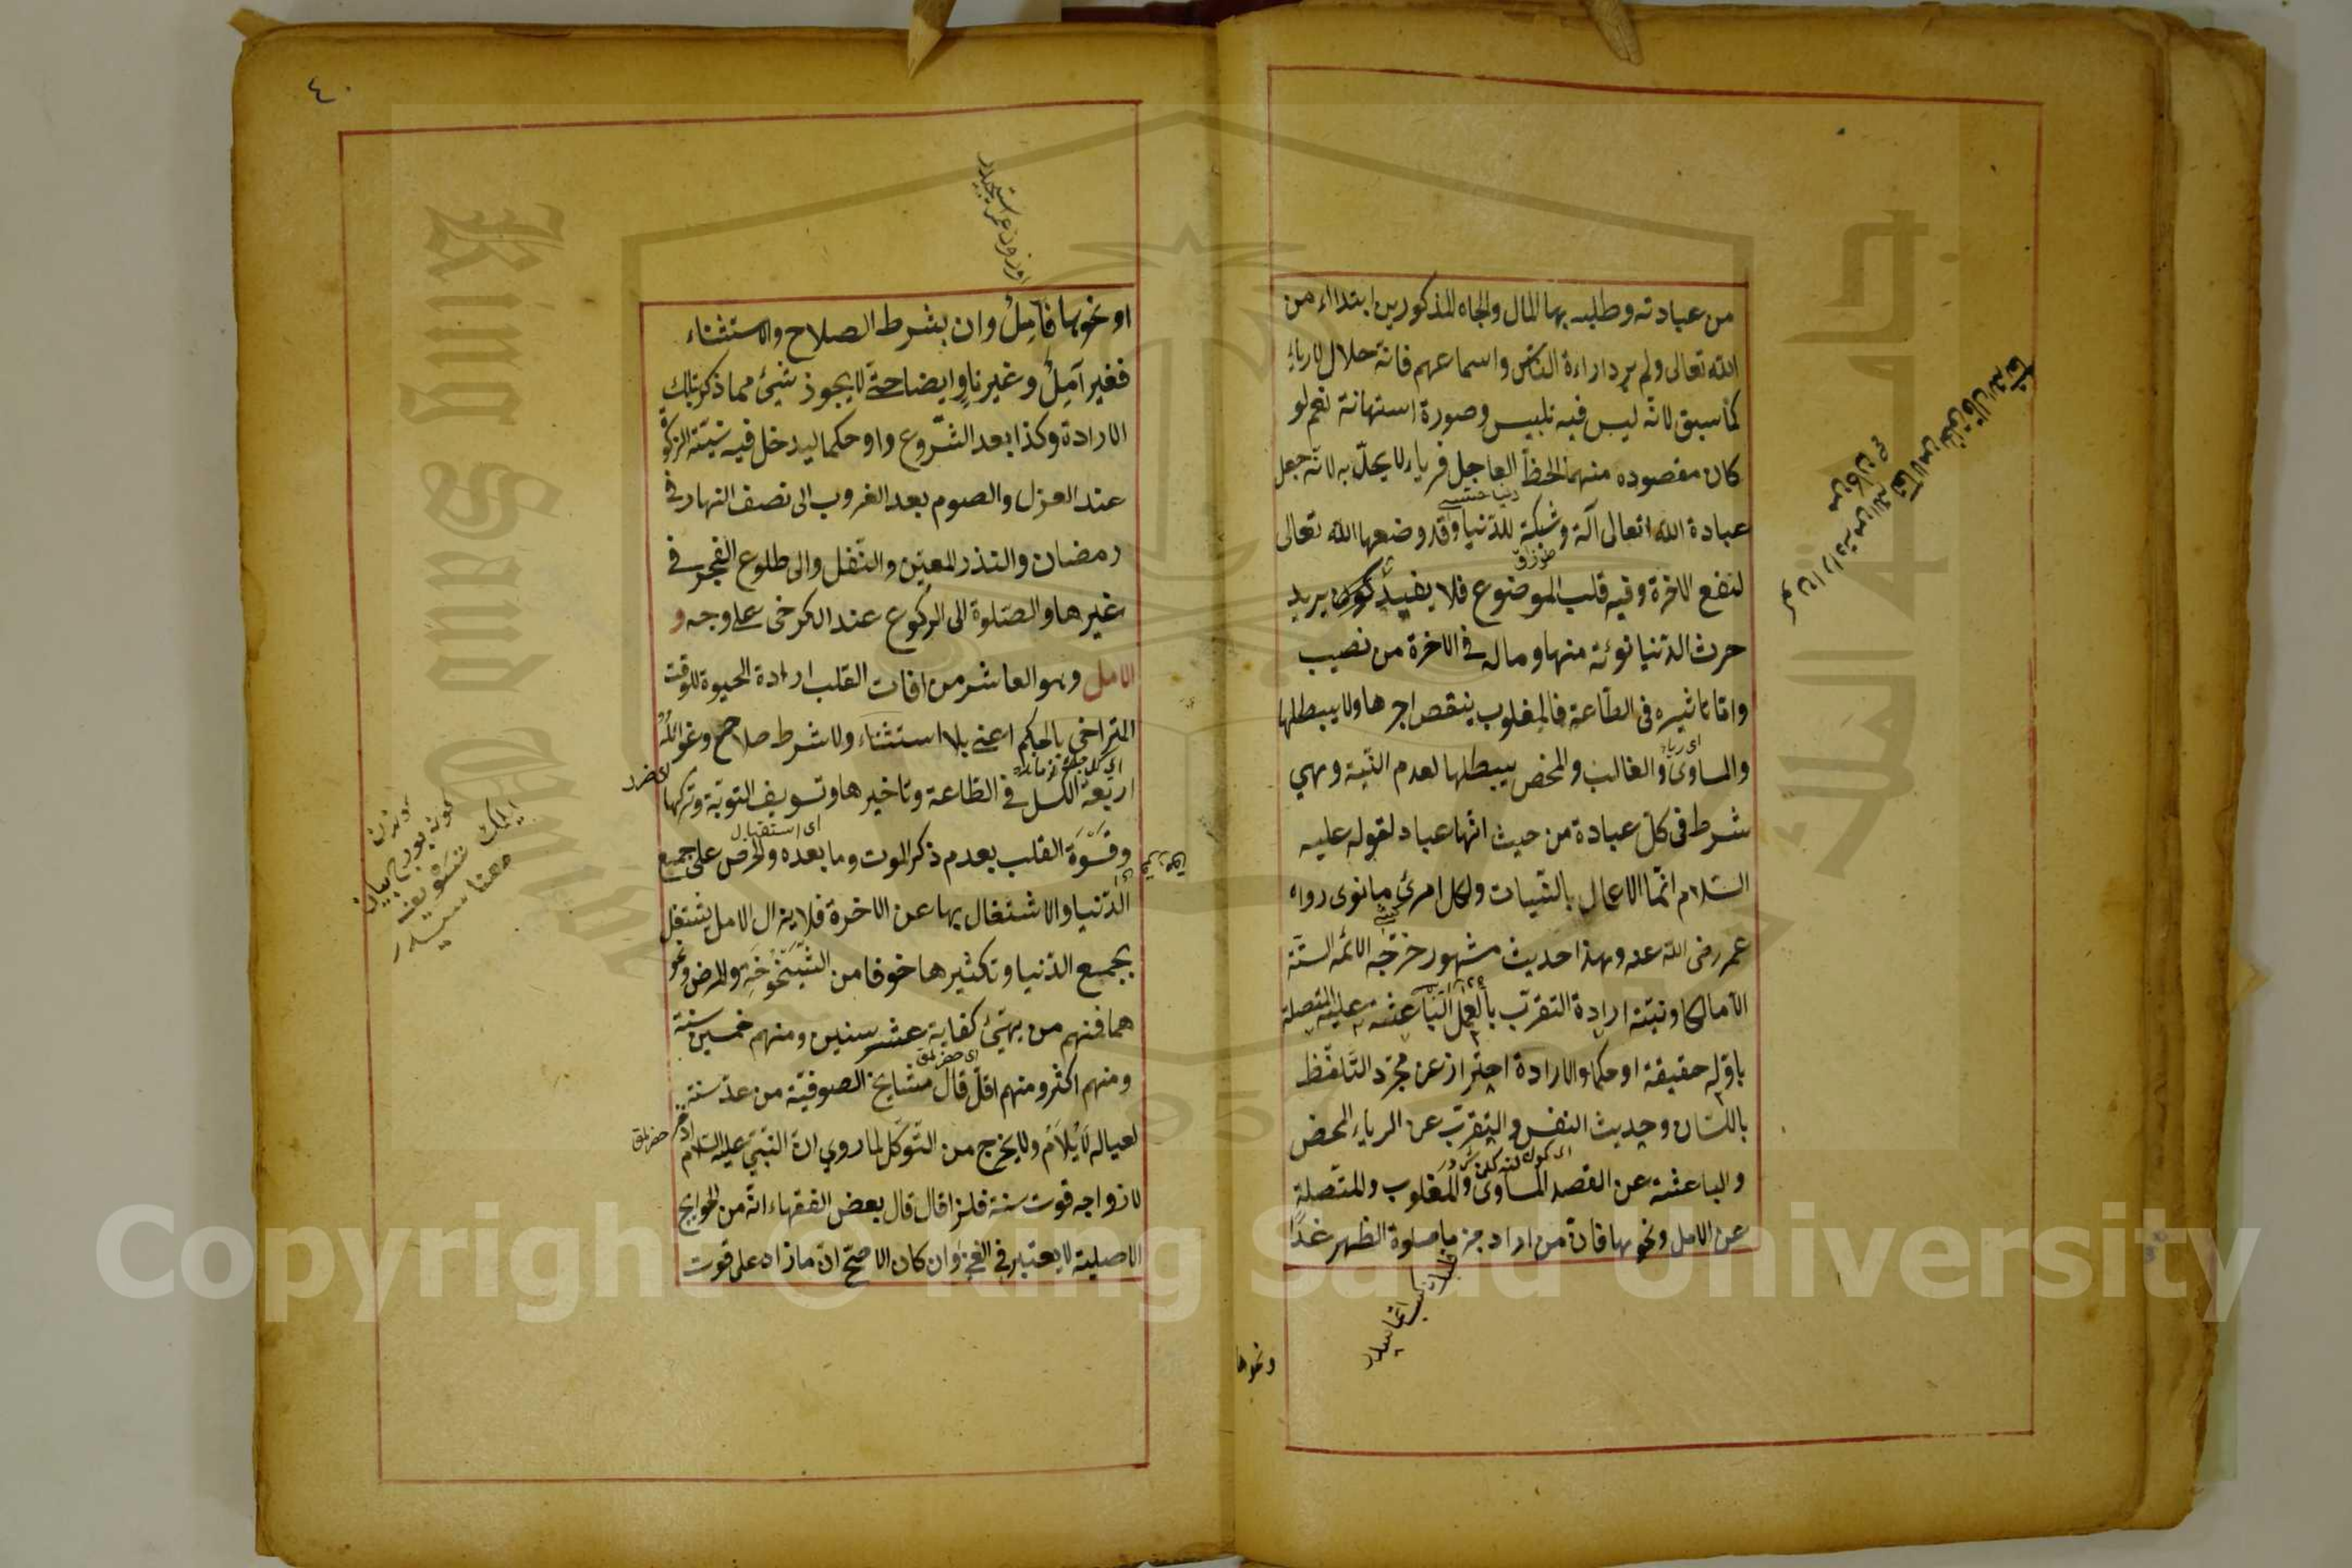 من عبادته وطلبه بها المال والجاه المذكورين ابتداء من
الله تعالى ولم يرد اراءة الناس واسماعهم فانه حلال لا رياء
كما سبق لانه ليس فيه تلبيس وصورة استهانة نعم لو
كان مقصوده منهما الحظ العاجل فرياء لا يحل به لانه جعل
عبادة الله تعالى آلة وشبكة للدنيا وقد وضعها الله تعالى
لنفع الاخرة وفيه قلب الموضوع فلا يفيد كونه يريد
حرث الدنيا نوته منها وماله فى الاخرة من نصيب
واما تاثيره فى الطاعة فالمغلوب ينقص اجرها ولا يبطلها
والمساوى والغالب والمحض يبطلها لعدم النية وهي
شرط فى كل عبادة من حيث انها عباد لقوله عليه
السلام انما الاعمال بالنيات ولكل امرئ ما نوى رواه
عمر رضى الله عنه وهذا حديث مشهور خرجه الائمه الستة
الا مالكا ونيته ارادة التقرب بالعمل الباعثة عليه المتصلة
باوله حقيقة او حكما والارادة احتراز عن مجرد التلفظ
باللسان وحديث النفس والتقرب عن الرياء المحض
والباعثة عن القصد المساوى والمغلوب والمتصلة
عن الامل ونحوها فان من اراد جزما صلوة الظهر غدا
ونحوها
٤٠
او نحوها فآمل وان بشرط الصلاح والاستثناء
فغير آمل وغير ناو ايضا حتى لا يجوز شيئ مما ذكر بتلك
الارادة وكذا بعد الشروع واو حكما ليدخل فيه نية الزكوة
عند العزل والصوم بعد الغروب الى نصف النهار فى
رمضان والنذر المعين والنفل والى طلوع الفجر فى
غيرها والصلوة الى الركوع عند الكرخى على وجه و
الامل وهو العاشر من افات القلب ارادة الحيوة للوقت
المتراخى بالحكم اعنى بلا استثناء ولا شرط صلاح وغوائله
اربعة الكسل فى الطاعة وتاخيرها وتسويف التوبة وتركها
اى استقبال
وقسوة القلب بعدم ذكر الموت وما بعده والحرص على جميع
الدنيا والاشتغال بها عن الاخرة فلا يزال الامل يشتغل
بجميع الدنيا وتكثيرها خوفا من الشيخوخة والمرض ونحو
هما فمنهم من يهيئ كفاية عشر سنين ومنهم خمسين سنة
ومنهم اكثر ومنهم اقل قال مشايخ الصوفية من عد سنة
لعياله لا يلام ولا يخرج من التوكل لما روي ان النبى عليه السلام
لازواجه قوت سنة فلذا قال قال بعض الفقهاء انه من الحوايج
الاصلية لا يعتبر فى الغنى وان كان الاصح ان ما زاد على قوت
Copyright © King Saud University